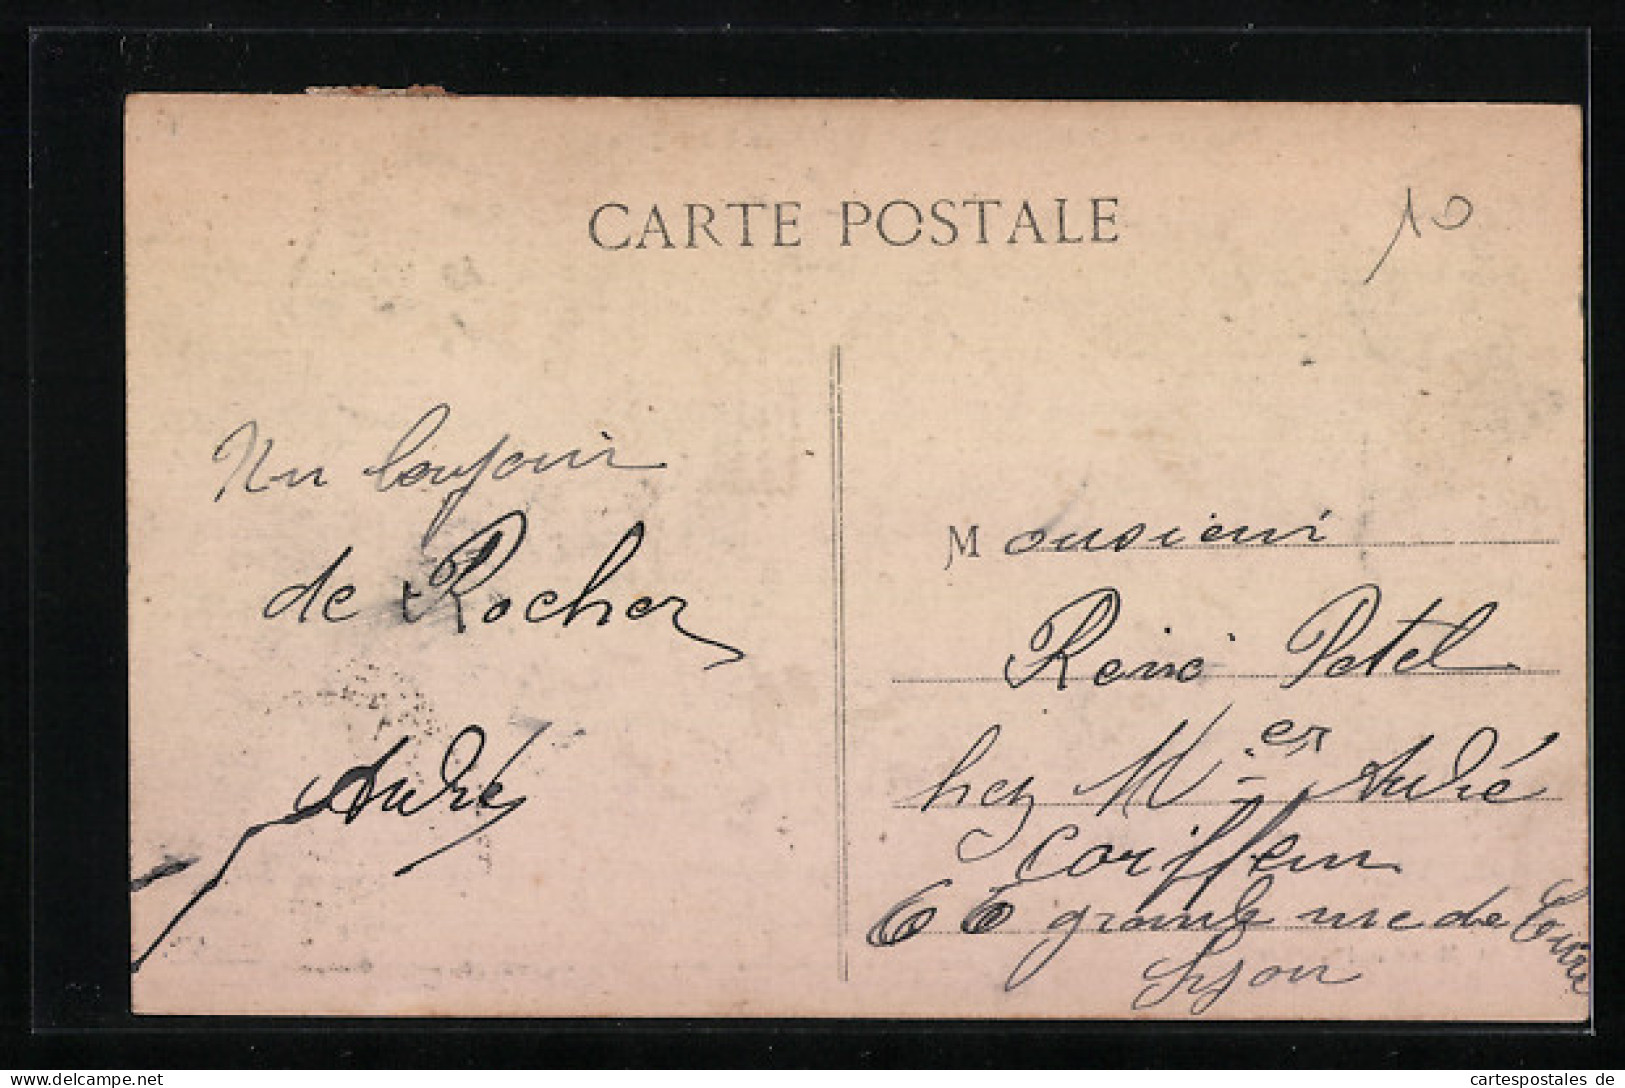 CARTE POSTALE
10
Un bonjour
de Rocher
André
Monsieur
René Patel
chez Mr André
Coiffeur
66 grande rue de
Lyon
cartespostales de